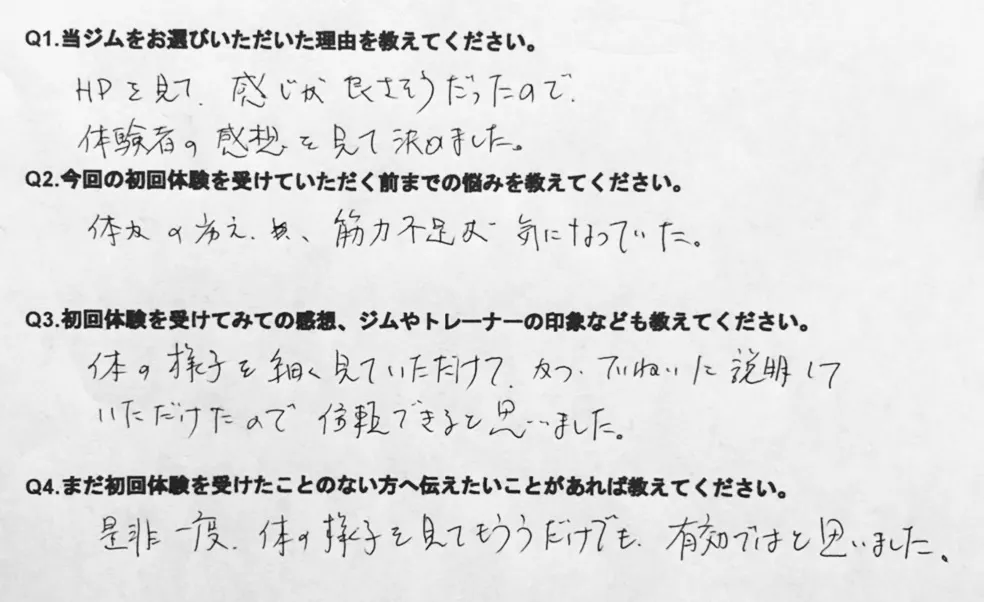 Q1.当ジムをお選びいただいた理由を教えてください。
HPを見て、感じが良さそうだったので、
体験者の感想を見て決めました。
Q2.今回の初回体験を受けていただく前までの悩みを教えてください。
体力の衰え、筋力不足が気になっていた。
Q3.初回体験を受けてみての感想、ジムやトレーナーの印象なども教えてください。
体の様子を細く見ていただけて、かつ、ていねいに説明して
いただけたので信頼できると思いました。
Q4.まだ初回体験を受けたことのない方へ伝えたいことがあれば教えてください。
是非一度、体の様子を見てもらうだけでも、有効ではと思いました、